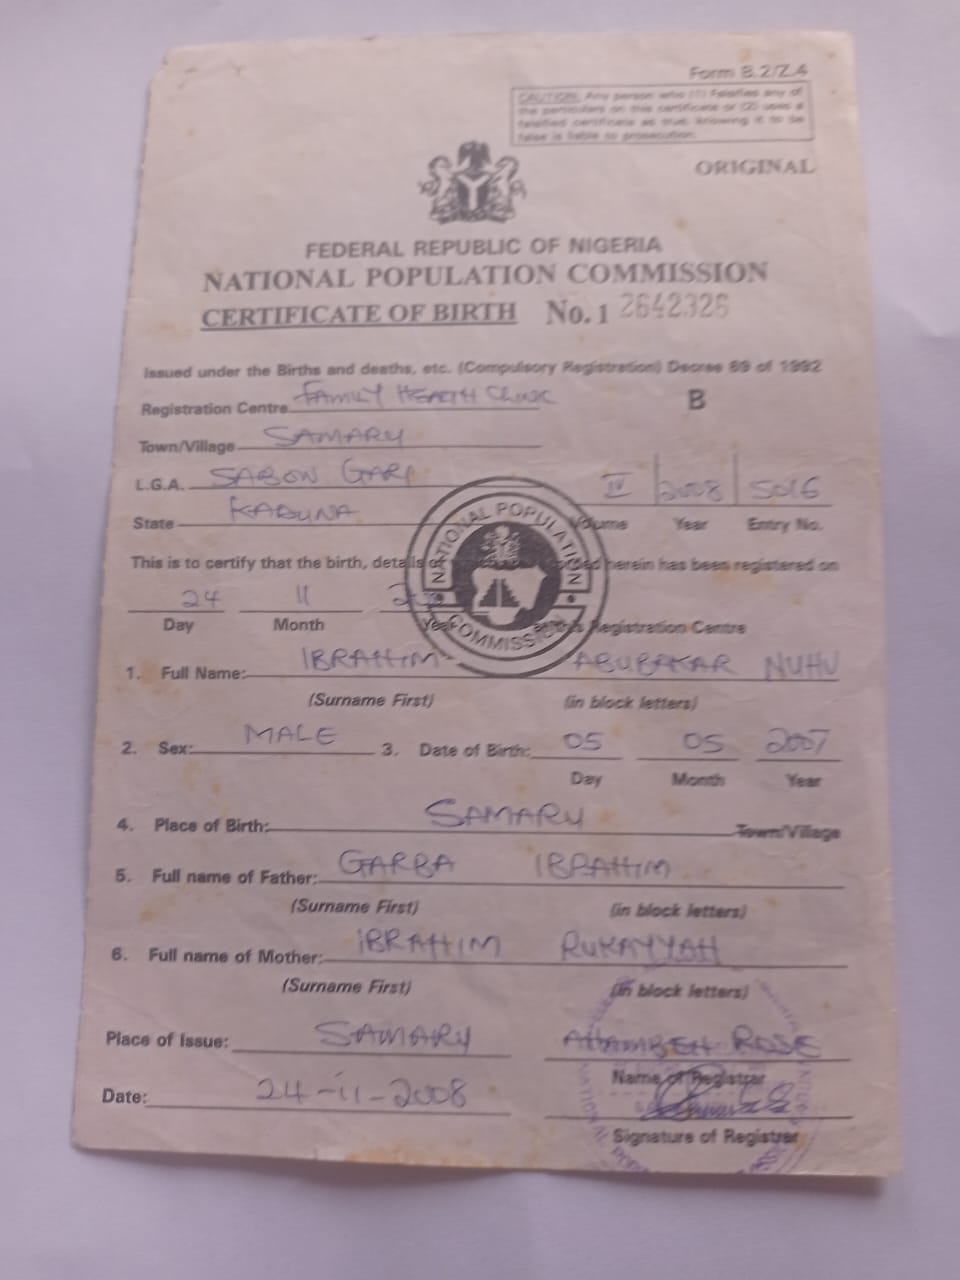 Form B.2/Z.4
CAUTION: Any person who (1) falsifies any of
the particulars on this certificate or (2) uses a
falsified certificate as true, knowing it to be
false is liable to prosecution.
ORIGINAL
FEDERAL REPUBLIC OF NIGERIA
NATIONAL POPULATION COMMISSION
CERTIFICATE OF BIRTH No. 1 2642326
Issued under the Births and deaths, etc. (Compulsory Registration) Decree 69 of 1992
Registration Centre FAMILY HEALTH CLINIC B
Town/Village SAMARU
L.G.A. SABON GARI IV 2008 5016
State KADUNA Volume Year Entry No.
NATIONAL POPULATION COMMISSION
This is to certify that the birth, details of herein has been registered on
24 11
Day Month Year at this Registration Centre
1. Full Name: IBRAHIM ABUBAKAR NUHU
(Surname First) (in block letters)
2. Sex: MALE 3. Date of Birth: 05 05 2007
Day Month Year
4. Place of Birth: SAMARU Town/Village
5. Full name of Father: GARBA IBRAHIM
(Surname First) (in block letters)
6. Full name of Mother: IBRAHIM RUKAYYAH
(Surname First) (in block letters)
Place of Issue: SAMARU ROSE
Name of Registrar
Date: 24-11-2008
Signature of Registrar